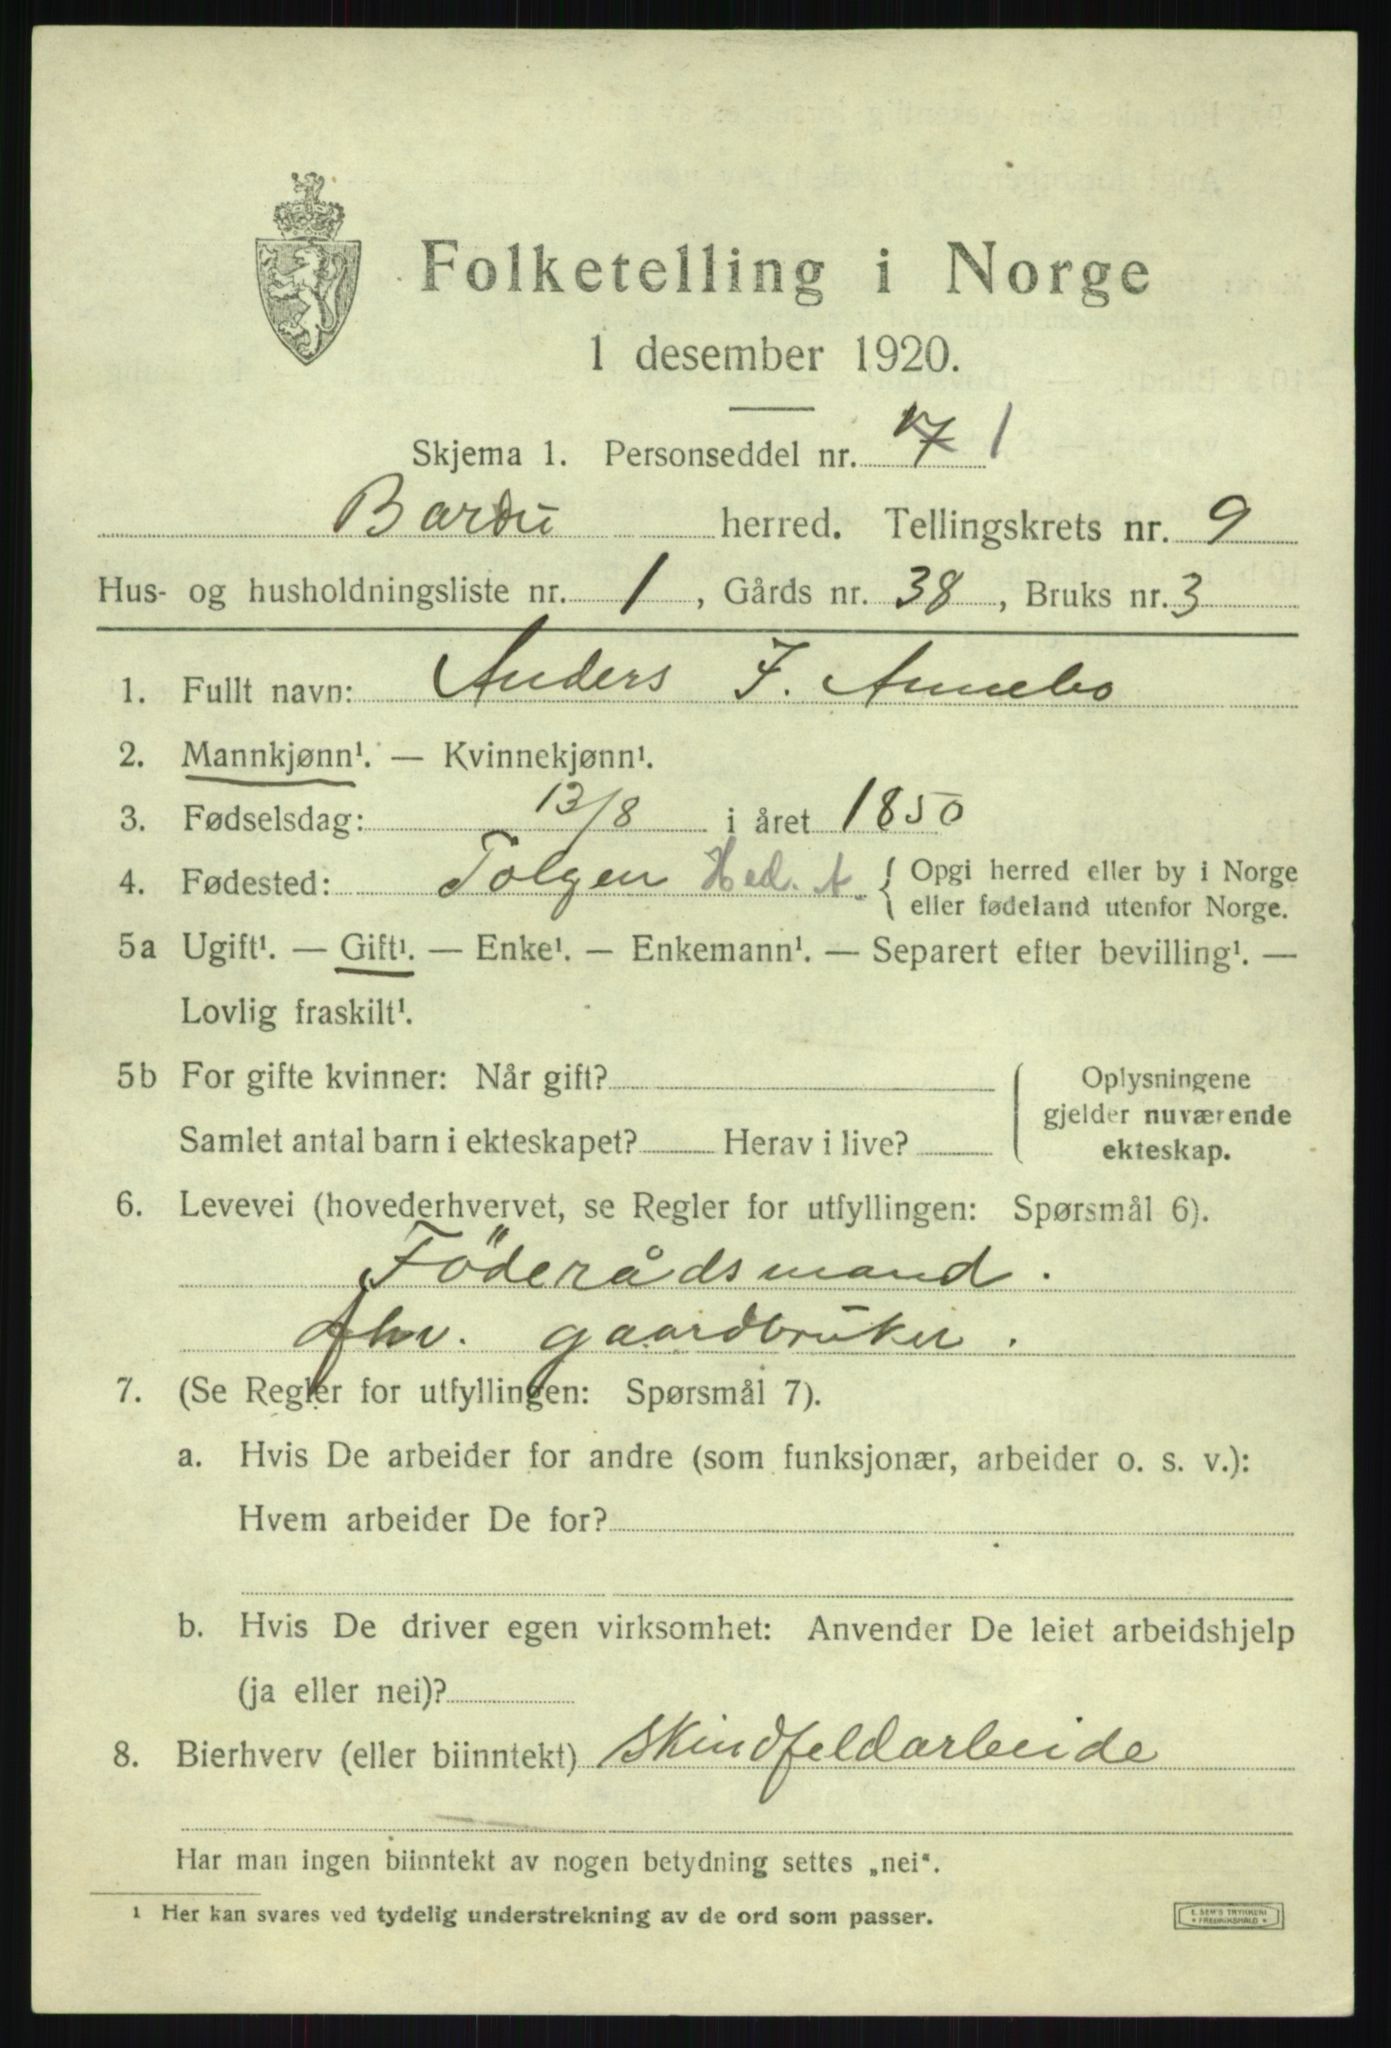 Folketelling i Norge
1 desember 1920.
Skjema 1. Personseddel nr. 1
Bardu herred. Tellingskrets nr. 9
Hus- og husholdningsliste nr. 1, Gårds nr. 38, Bruks nr. 3
1. Fullt navn: Anders J. Annebo
2. Mannkjønn¹. — Kvinnekjønn¹.
3. Fødselsdag: 13/8 i året 1850
4. Fødested: Tolgen Hed. A. { Opgi herred eller by i Norge
eller fødeland utenfor Norge.
5a Ugift¹. — Gift¹. — Enke¹. — Enkemann¹. — Separert efter bevilling¹. —
Lovlig fraskilt¹.
5b For gifte kvinner: Når gift? Oplysningene
gjelder nuværende
Samlet antal barn i ekteskapet? Herav i live? ekteskap.
6. Levevei (hovederhvervet, se Regler for utfyllingen: Spørsmål 6).
Föderådsmand.
fhv. gaardbruker.
7. (Se Regler for utfyllingen: Spørsmål 7).
a. Hvis De arbeider for andre (som funksjonær, arbeider o. s. v.):
Hvem arbeider De for?
b. Hvis De driver egen virksomhet: Anvender De leiet arbeidshjelp
(ja eller nei)?
8. Bierhverv (eller biinntekt) Skindfeldarbeide
Har man ingen biinntekt av nogen betydning settes „nei“.
¹ Her kan svares ved tydelig understrekning av de ord som passer.
E. SEM'S TRYKKERI
* FREDRIKSHALD *